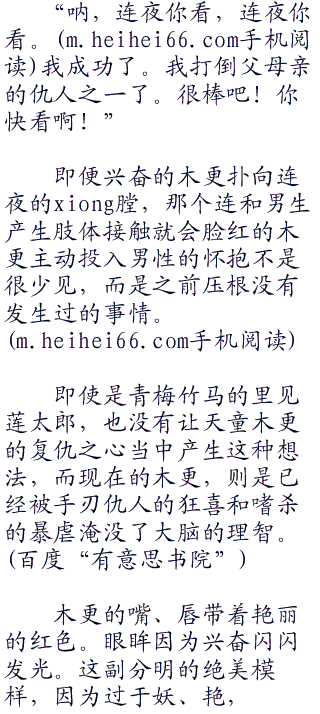 “呐，连夜你看，连夜你
看。(m.heihei66.com手机阅
读)我成功了。我打倒父母亲
的仇人之一了。很棒吧！你
快看啊！”
即便兴奋的木更扑向连
夜的xiong膛，那个连和男生
产生肢体接触就会脸红的木
更主动投入男性的怀抱不是
很少见，而是之前压根没有
发生过的事情。
(m.heihei66.com手机阅读)
即使是青梅竹马的里见
莲太郎，也没有让天童木更
的复仇之心当中产生这种想
法，而现在的木更，则是已
经被手刃仇人的狂喜和嗜杀
的暴虐淹没了大脑的理智。
(百度“有意思书院”)
木更的嘴、唇带着艳丽
的红色。眼眸因为兴奋闪闪
发光。这副分明的绝美模
样，因为过于妖、艳，